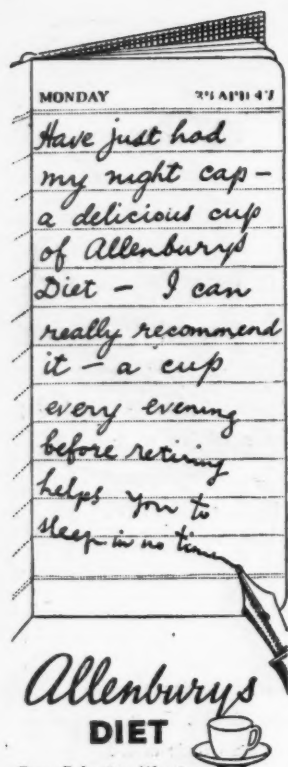 MONDAY
Have just had
my night cap –
a delicious cup
of Allenburys
Diet – I can
really recommend
it – a cup
every evening
before retiring
helps you to
sleep in no time
Allenburys
DIET